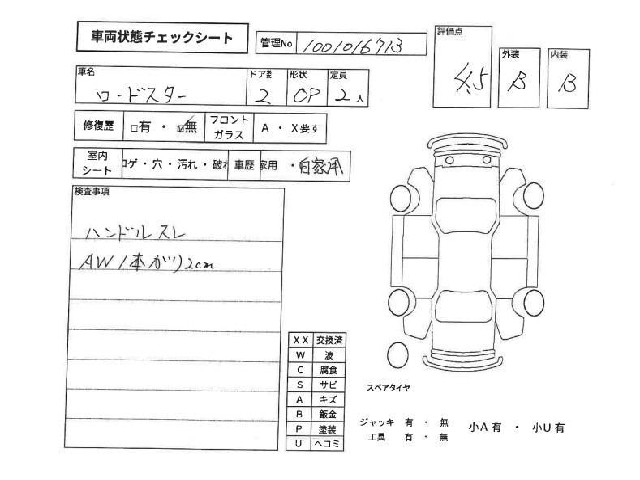 車両状態チェックシート 管理No 1001016713
評価点 4.5 外装 B 内装 B
車名 ロードスター ドア数 2 形状 OP 定員 2人
修復歴 □有 ・ ☑無 フロントガラス A ・ X要す
室内シート コゲ・穴・汚れ・破れ 車歴 家用 ・自家用
検査事項
ハンドルスレ
AW1本ガリ2cm
XX 交換済
W 波
C 腐食
S サビ
A キズ
B 鈑金
P 塗装
U ヘコミ
スペアタイヤ
ジャッキ 有 ・ 無
工具 有 ・ 無
小A有 ・ 小U有